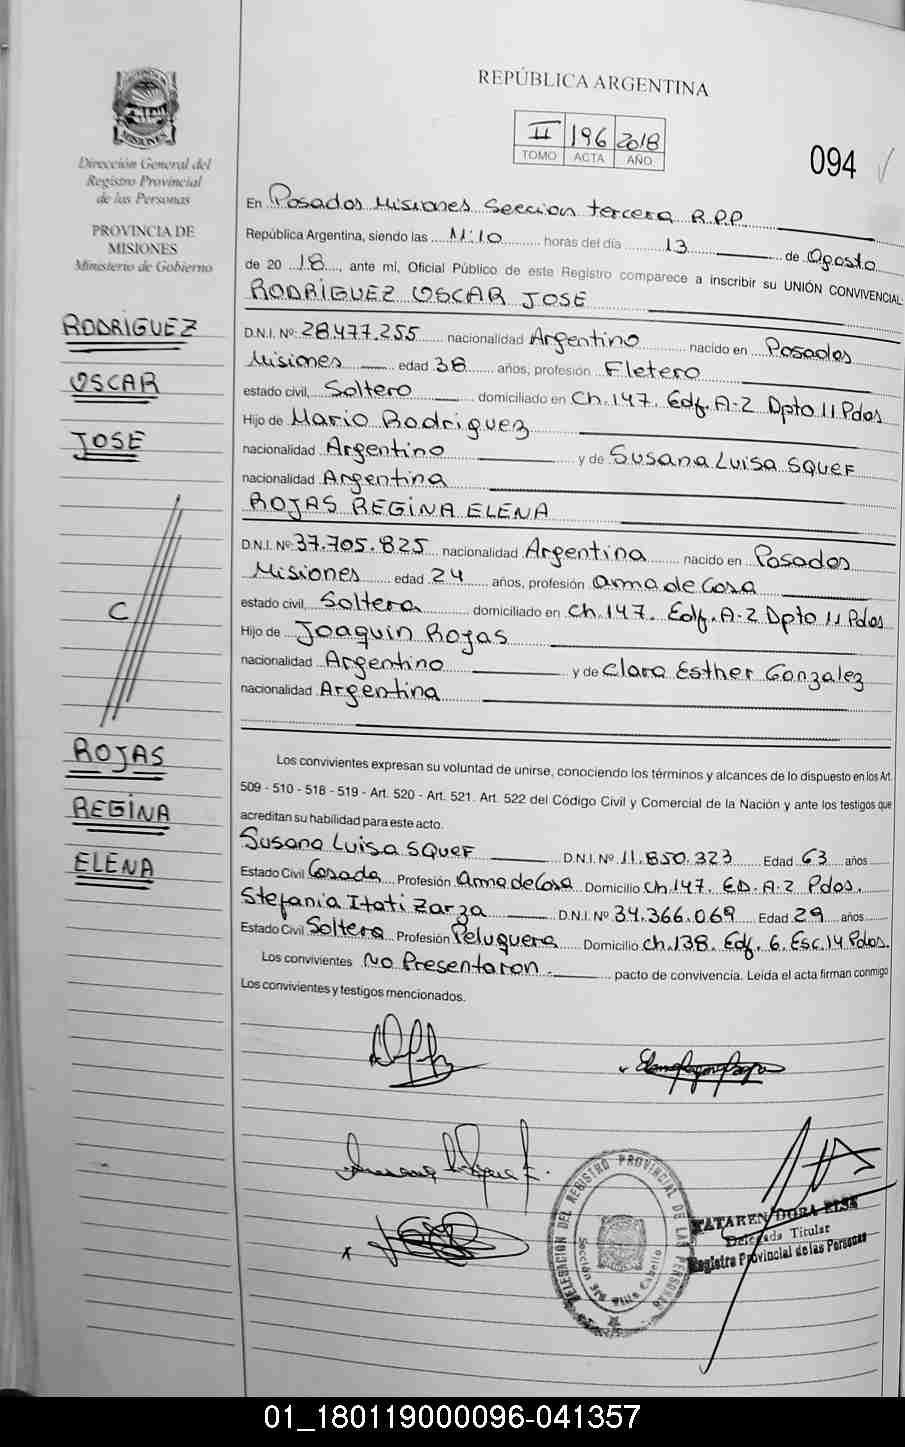 REPÚBLICA ARGENTINA
II 196 2018
TOMO ACTA AÑO
094
MISIONES
Dirección General del
Registro Provincial
de las Personas
PROVINCIA DE
MISIONES
Ministerio de Gobierno
RODRIGUEZ
OSCAR
JOSE
C
ROJAS
REGINA
ELENA
En Posadas Misiones Seccion tercera R.P.P
República Argentina, siendo las 11:10 horas del día 13 de Agosto
de 20 18, ante mi, Oficial Público de este Registro comparece a inscribir su UNIÓN CONVIVENCIAL
RODRIGUEZ OSCAR JOSE
D.N.I. Nº 28.477.255 nacionalidad Argentino nacido en Posadas
Misiones edad 38 años, profesión Fletero
estado civil, Soltero domiciliado en Ch.147. Edf. A-2 Dpto 11 Pdas
Hijo de Mario Rodriguez
nacionalidad Argentino y de Susana Luisa SQUEF
nacionalidad Argentina
ROJAS REGINA ELENA
D.N.I. Nº 37.705.825 nacionalidad Argentina nacido en Posadas
Misiones edad 24 años, profesión ama de Casa
estado civil, Soltera domiciliado en Ch.147. Edf. A-2 Dpto 11 Pdas
Hijo de Joaquin Rojas
nacionalidad Argentino y de Clara Esther Gonzalez
nacionalidad Argentina
Los convivientes expresan su voluntad de unirse, conociendo los términos y alcances de lo dispuesto en los Art.
509 - 510 - 518 - 519 - Art. 520 - Art. 521. Art. 522 del Código Civil y Comercial de la Nación y ante los testigos que
acreditan su habilidad para este acto.
Susana Luisa SQUEF D.N.I. Nº 11.850.323 Edad 63 años
Estado Civil Casada Profesión ama de Casa Domicilio Ch 147. ED. A-2 Pdas.
Stefania Itati Zarza D.N.I. Nº 34.366.069 Edad 29 años
Estado Civil Soltera Profesión Peluquera Domicilio Ch.138. Edf. 6. Esc.14 Pdas.
Los convivientes No Presentaron. pacto de convivencia. Leída el acta firman conmigo
Los convivientes y testigos mencionados.
DELEGACION DEL REGISTRO PROVINCIAL DE LAS PERSONAS
Sección 3ra Villa Cabello
TATAREN DORA ELSA
Delegada Titular
Registro Provincial de las Personas
01_180119000096-041357